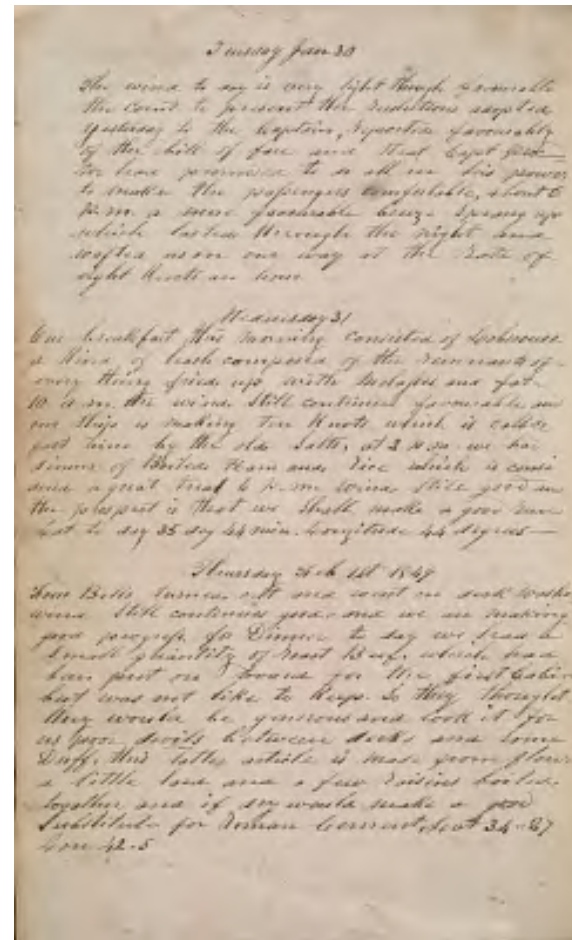 Tuesday Jan 30
The wind to day is very light though favourable
the comt to present the resolutions adopted
yesterday to the Captain, reported favourably
of the bill of fare and that Capt
has promised to do all in his power
to make the passengers comfortable, about 6
P.m. a more favourable breeze sprung up
which lasted through the night and
wafted us on our way at the rate of
eight Knots an hour
Wednesday 31
Our breakfast this morning consisted of Lobscouse
a kind of hash composed of the remnants of
every thing fried up with Molasses and fat
10 a.m. the wind still continues favourable and
our Ship is making Ten Knots which is called
good time by the old Salts, at 2 P.m. we had
dinner of Boiled Ham and rice which is consi
dered a great treat 6 P.m. wind still good and
the prospect is that we shall make a good run
Lat to day 35 deg 44 min. Longitude 44 degrees
Thursday Feb 1st 1849
Four Bells turned out and went on deck
wind still continues good and we are making
good progress for Dinner to day we had a
small quantity of roast Beef, which had
been put on board for the first Cabin
but was not like to keep. So they thought
they would be generous and cook it for
us poor devils between decks and some
Duff, this latter article is made from flour
a little lard and a few raisins boiled
together and if dry would make a good
Substitute for Roman Cement, Lat 34-27
Lon 42.5